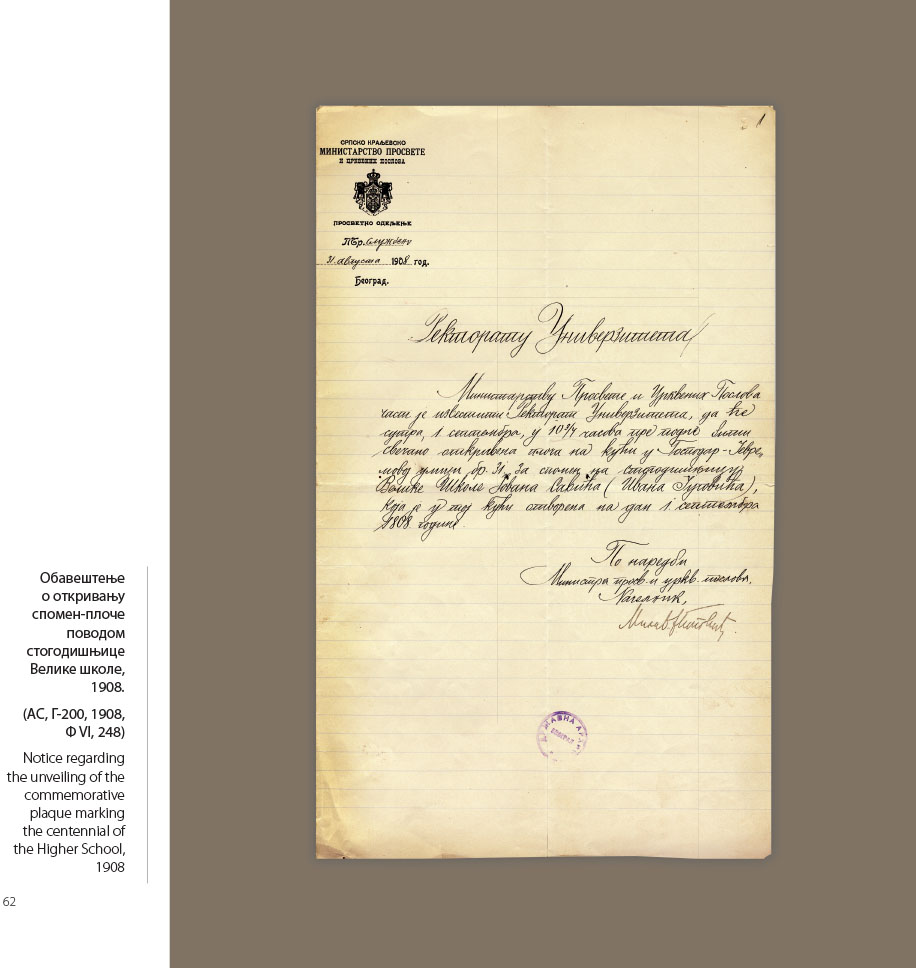 Обавештење
о откривању
спомен-плоче
поводом
стогодишњице
Велике школе,
1908.
(АС, Г-200, 1908,
Ф VI, 248)
Notice regarding
the unveiling of the
commemorative
plaque marking
the centennial of
the Higher School,
1908
62
1
СРПСКО КРАЉЕВСКО
МИНИСТАРСТВО ПРОСВЕТЕ
И ЦРКВЕНИХ ПОСЛОВА
ПРОСВЕТНО ОДЕЉЕЊЕ
ПБр. Службени
31. августа 1908 год.
Београд.
Ректорату Универзитета
Министарству Просвете и Црквених Послова
част је известити Ректорат Универзитета, да ће
сутра, 1 септембра, у 10 3/4 часова пре подне бити
свечано откривена плоча на кући у Господар-Јевре
мовој улици бр. 31, за спомен на стогодишњицу
Велике Школе Јована Савића (Ивана Југовића),
која је у тој кући отворена на дан 1 септембра
1808. године.
По наредби
Министра просв. и црkв. послова,
Начелник,
ДРЖАВНА
БЕОГРАД